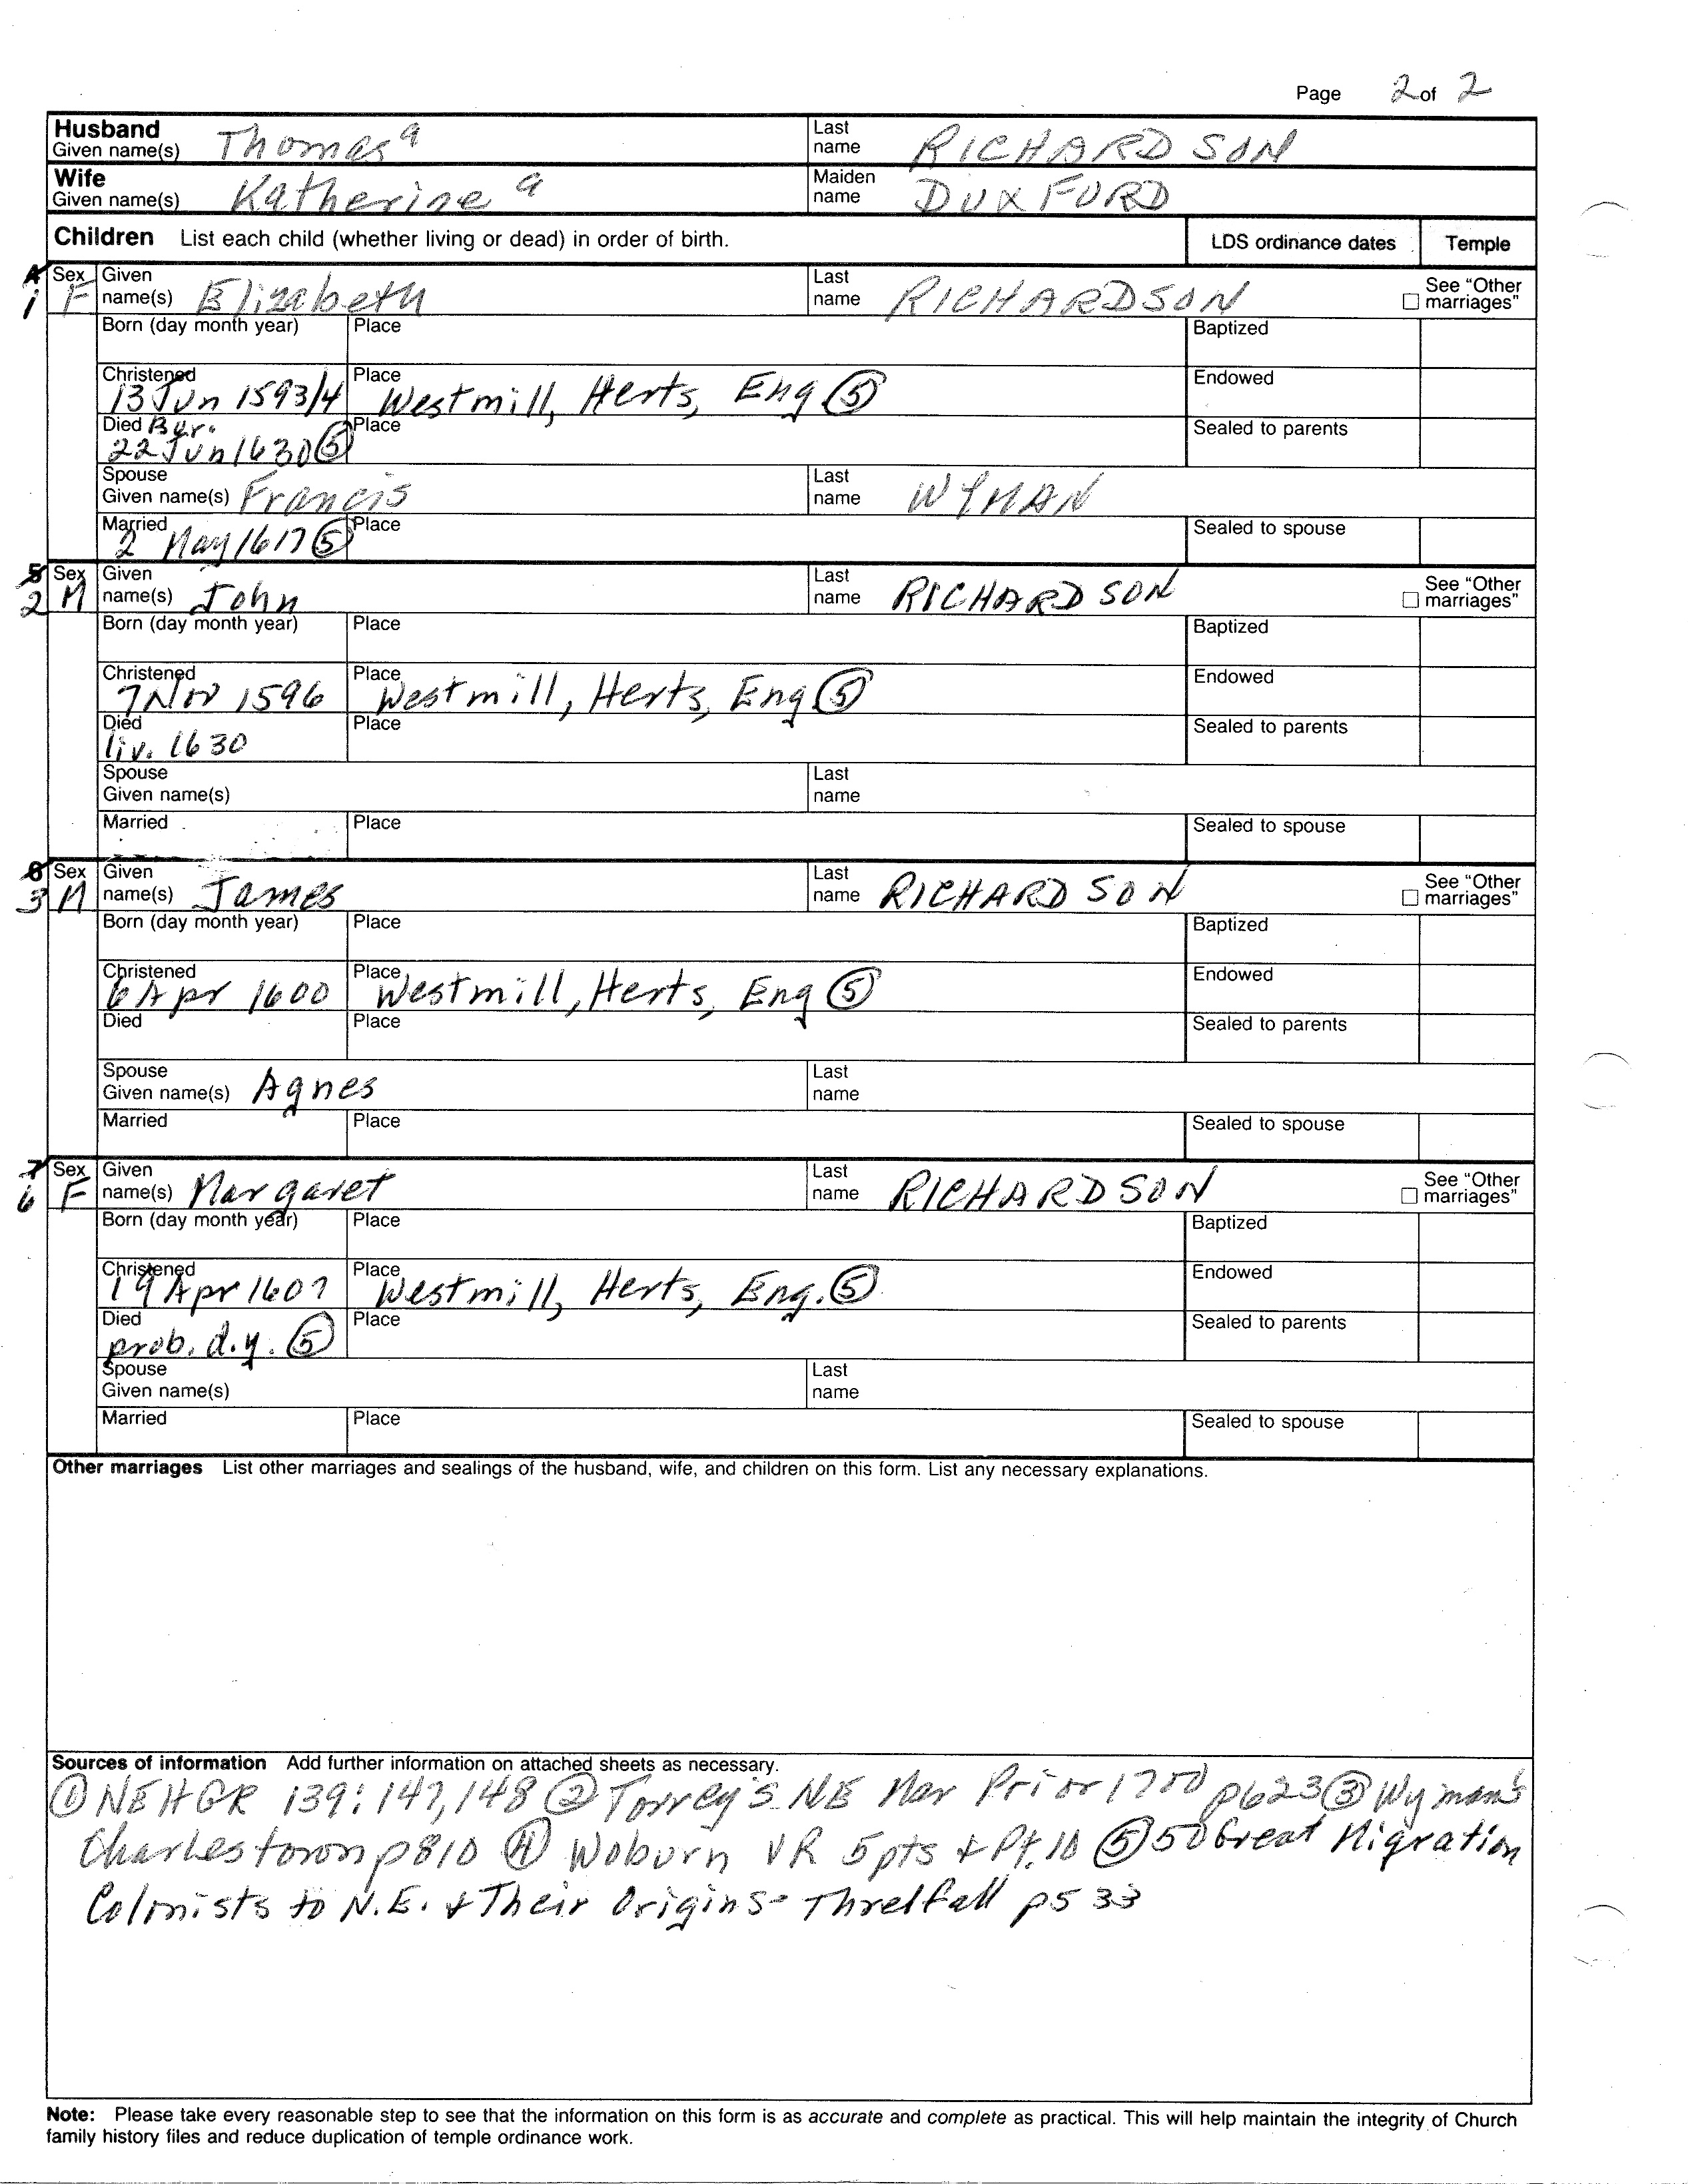 Page 2 of 2
Husband Given name(s) Thomas a Last name RICHARDSON
Wife Given name(s) Katherine a Maiden name DUXFORD
Children List each child (whether living or dead) in order of birth. LDS ordinance dates Temple
1 Sex F Given name(s) Elizabeth Last name RICHARDSON See "Other marriages"
Born (day month year) Place Baptized
Christened 13 Jun 1593/4 Place Westmill, Herts, Eng ⑤ Endowed
Died Bur. 22 Jun 1630 ⑤ Place Sealed to parents
Spouse Given name(s) Francis Last name WYMAN
Married 2 May 1617 ⑤ Place Sealed to spouse
5 2 Sex M Given name(s) John Last name RICHARDSON See "Other marriages"
Born (day month year) Place Baptized
Christened 7 Nov 1596 Place Westmill, Herts, Eng ⑤ Endowed
Died liv. 1630 Place Sealed to parents
Spouse Given name(s) Last name
Married Place Sealed to spouse
6 3 Sex M Given name(s) James Last name RICHARDSON See "Other marriages"
Born (day month year) Place Baptized
Christened 6 Apr 1600 Place Westmill, Herts, Eng ⑤ Endowed
Died Place Sealed to parents
Spouse Given name(s) Agnes Last name
Married Place Sealed to spouse
7 6 Sex F Given name(s) Margaret Last name RICHARDSON See "Other marriages"
Born (day month year) Place Baptized
Christened 19 Apr 1607 Place Westmill, Herts, Eng. ⑤ Endowed
Died prob. d.y. ⑤ Place Sealed to parents
Spouse Given name(s) Last name
Married Place Sealed to spouse
Other marriages List other marriages and sealings of the husband, wife, and children on this form. List any necessary explanations.
Sources of information Add further information on attached sheets as necessary.
① NEHGR 139:147,148 ② Torrey's NE Mar Prior 1700 p623 ③ Wyman's
Charlestown p810 ④ Woburn VR 5pts + Pt. 10 ⑤ 50 Great Migration
Colonists to N.E. + Their Origins- Threlfall p533
Note: Please take every reasonable step to see that the information on this form is as accurate and complete as practical. This will help maintain the integrity of Church
family history files and reduce duplication of temple ordinance work.